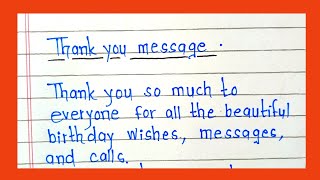 Thank you message.
Thank you so much to
everyone for all the beautiful
birthday wishes, messages,
and calls.